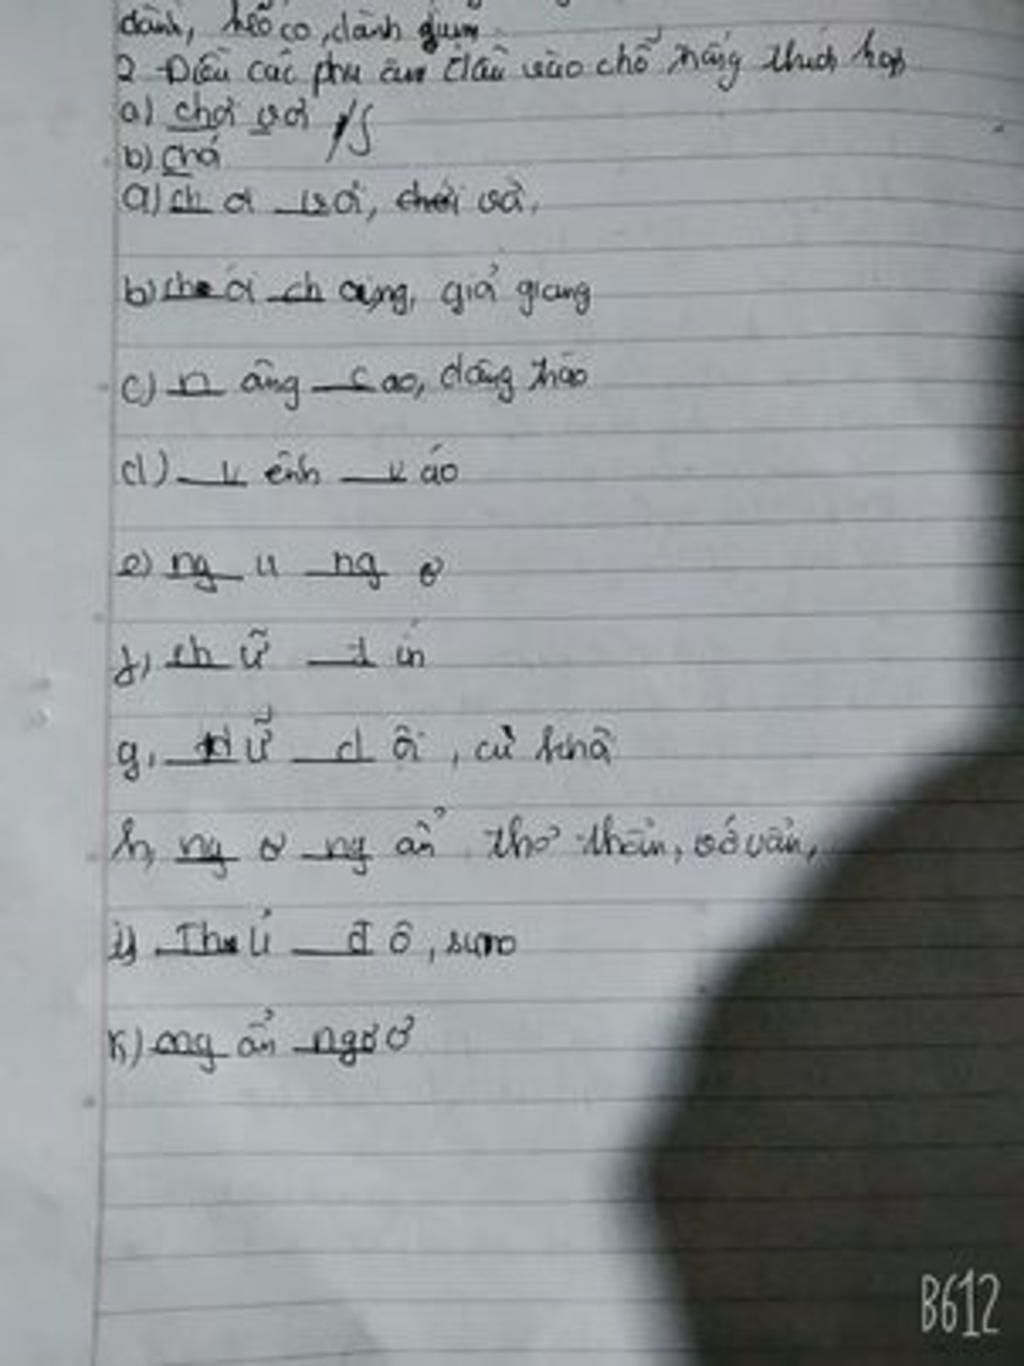 dành, kẹo co, dành giụm
2 Điền các phụ âm đầu vào chỗ trống thích hợp
a) chơi vơi
b) chá
a) ch ơi vơi, chới với.
b) ch ói ch ang, giỏi giang
c) n âng c ao, dâng trào
d) v ênh v áo
e) ng u ng ơ
f, ch ữ t ín
g, d ữ d ội, cũ
h, ng ơ ng ẩn thơ thẩn, vớ vẩn,
i) Th ủ đ ô, sumo
k) ng ẩn ngơ ơ
B612